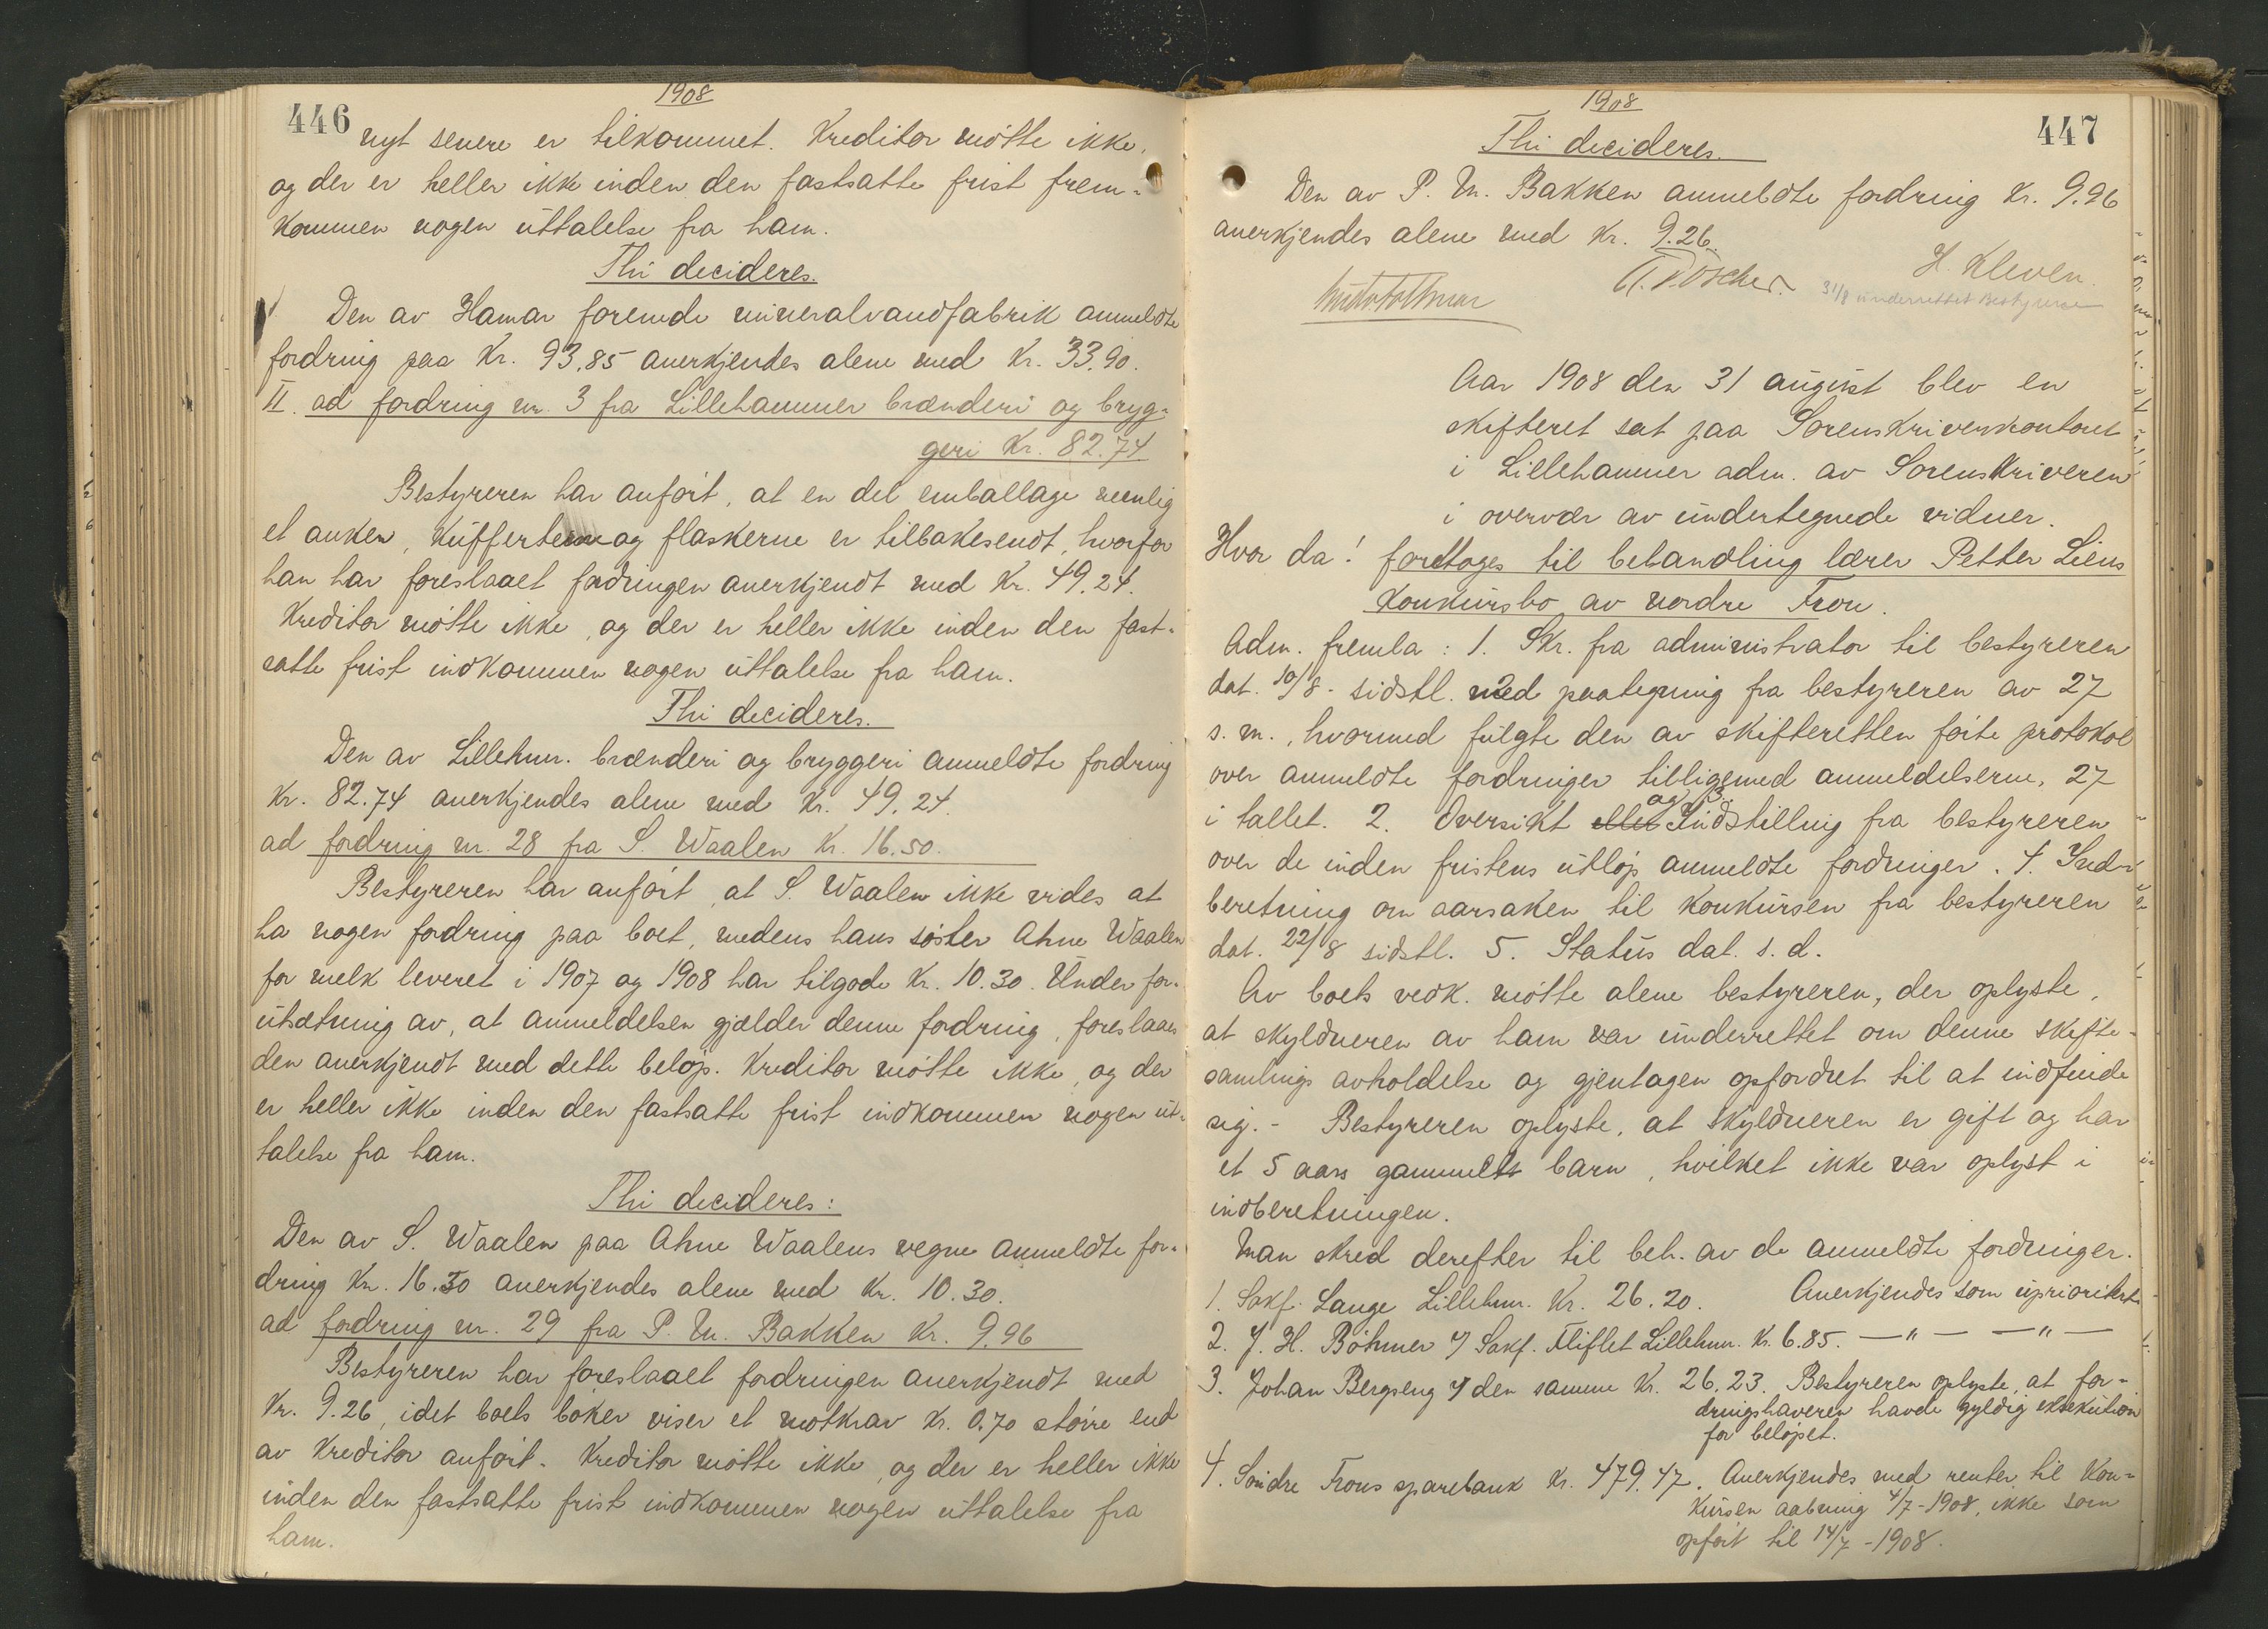 1908
446
nyt senere er tilkommet. Kreditor møtte ikke,
og der er heller ikke inden den fastsatte frist frem-
kommen nogen uttalelse fra ham.
Thi decideres.
Den av Hamar forenede mineralvandfabrik anmeldte
fordring paa Kr. 93.85 anerkjendes alene med Kr. 33.90.
II. ad fordring nr. 3 fra Lillehammer brænderi og bryg-
geri Kr. 82.74
Bestyreren har anført, at en del emballage nemlig
et anker, kufferter og flaskerne er tilbakesendt, hvorfor
han har foreslaaet fordringen anerkjendt med Kr. 49.24.
Kreditor møtte ikke, og der er heller ikke inden den fast-
satte frist indkommen nogen uttalelse fra ham.
Thi decideres.
Den av Lillehmr. brænderi og bryggeri anmeldte fordring
Kr. 82.74 anerkjendes alene med Kr. 49.24.
ad fordring nr. 28 fra S. Waalen Kr. 16.50.
Bestyreren har anført, at S. Waalen ikke vides at
ha nogen fordring paa boet, medens hans søster Ahne Waalen
for melk leveret i 1907 og 1908 har tilgode Kr. 10.30. Under for-
utsætning av, at anmeldelsen gjælder denne fordring, foreslaaes
den anerkjendt med dette beløp. Kreditor møtte ikke, og der
er heller ikke inden den fastsatte frist indkommen nogen ut-
talelse fra ham.
Thi decideres:
Den av S. Waalen paa Ahne Waalens vegne anmeldte for-
dring Kr. 16.50 anerkjendes alene med Kr. 10.30.
ad fordring nr. 29 fra P. M. Bakken Kr. 9.96
Bestyreren har foreslaaet fordringen anerkjendt med
Kr. 9.26, idet boets bøker viser et motkrav Kr. 0.70 større end
av Kreditor anført. Kreditor møtte ikke, og der er heller ikke
inden den fastsatte frist indkommen nogen uttalelse fra
ham.
1908
447
Thi decideres.
Den av P. M. Bakken anmeldte fordring Kr. 9.96
anerkjendes alene med Kr. 9.26.
H. Kleven
31/8 underrettet Bestyreren
Aar 1908 den 31 august blev en
skifteret sat paa Sorenskriverkontoret
i Lillehammer adm. av Sorenskriveren
i overvær av undertegnede vidner.
Hvor da! foretoges til behandling lærer Petter Liens
Konkursbo av nordre Fron.
Adm. fremla: 1. Skr. fra administrator til bestyreren
dat. 10/8. sidstl. med paategning fra bestyreren av 27
s. m., hvormed fulgte den av skifteretten førte protokol
over anmeldte fordringer tilligemed anmeldelserne, 27
i tallet. 2. Oversikt eller og 3. Indstilling fra bestyreren
over de inden fristens utløp anmeldte fordringer. 4. Ind-
beretning om aarsaken til Konkursen fra bestyreren
dat. 22/8 sidstl. 5. Status dat. s. d.
Av boets vedk. møtte alene bestyreren, der oplyste,
at skyldneren av ham var underrettet om denne skifte-
samlings avholdelse og gjentagen opfordret til at indfinde
sig. - Bestyreren oplyste, at skyldneren er gift og har
et 5 aars gammelt barn, hvilket ikke var oplyst i
indberetningen.
Man skred derefter til beh. av de anmeldte fordringer.
1. Sakf. Lange Lillehmr. Kr. 26.20. Anerkjendes som uprioritert
2. J. H. Böhmer v/ Sakf. Fliflet Lillehmr. Kr. 6.85. —"— —"—
3. Johan Bergseng v/ den samme Kr. 26.23. Bestyreren oplyste, at for-
dringshaveren havde gyldig eksekution
for beløpet.
4. Søndre Frons sparebank Kr. 479.47. Anerkjendes med renter til Kon-
kursen aabning 4/7-1908, ikke som
opført til 14/7-1908.